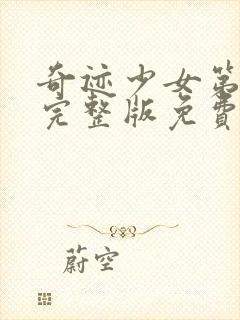 奇迹少女第
完整版免費
蔚空